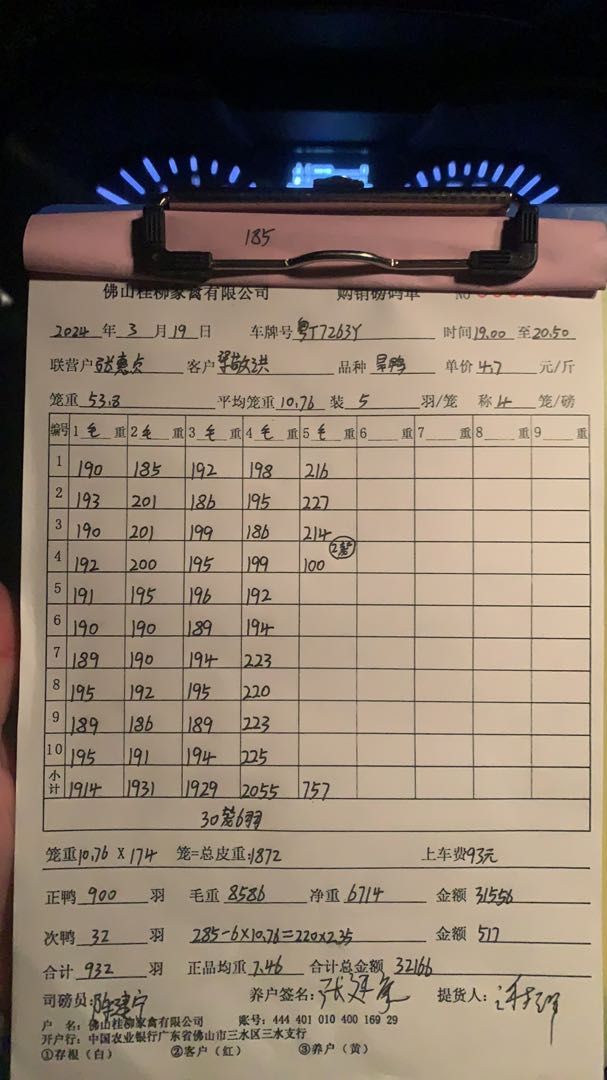 185
佛山桂柳家禽有限公司 购销磅码单 NO
2024 年 3 月 19 日 车牌号 粤T7263Y 时间 19.00 至 20.50
联营户 张惠贞 客户 梁敬洪 品种 旱鸭 单价 4.7 元/斤
笼重 53.8 平均笼重 10.76 装 5 羽/笼 称 4 笼/磅
编号 1 毛 重 2 毛 重 3 毛 重 4 毛 重 5 毛 重 6 重 7 重 8 重 9 重
1 190 185 192 198 216
2 193 201 186 195 227
3 190 201 199 186 214
2笼
4 192 200 195 199 100
5 191 195 196 192
6 190 190 189 194
7 189 190 194 223
8 195 192 195 220
9 189 186 189 223
10 195 191 194 225
小计 1914 1931 1929 2055 757
30笼6羽
笼重 10.76 X 174 笼=总皮重:1872 上车费93元
正鸭 900 羽 毛重 8586 净重 6714 金额 31556
次鸭 32 羽 285-6×10.76=220×2.35 金额 517
合计 932 羽 正品均重 7.46 合计总金额 32166
司磅员: 养户签名: 提货人:
户 名: 佛山桂柳家禽有限公司 账号: 444 401 010 400 169 29
开户行: 中国农业银行广东省佛山市三水区三水支行
①存根(白) ②客户(红) ③养户(黄)